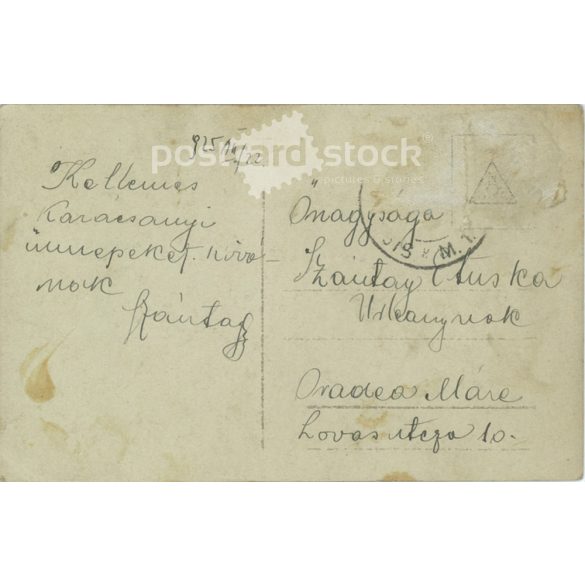 925 XII/22
postcard stock
pictures & stories
Kellemes
Karácsonyi
ünnepeket kivá-
nok
Szántay
Őnagysága
Szántay Etuska
Urleánynak
Oradea Máre
Lovas utcza 10.